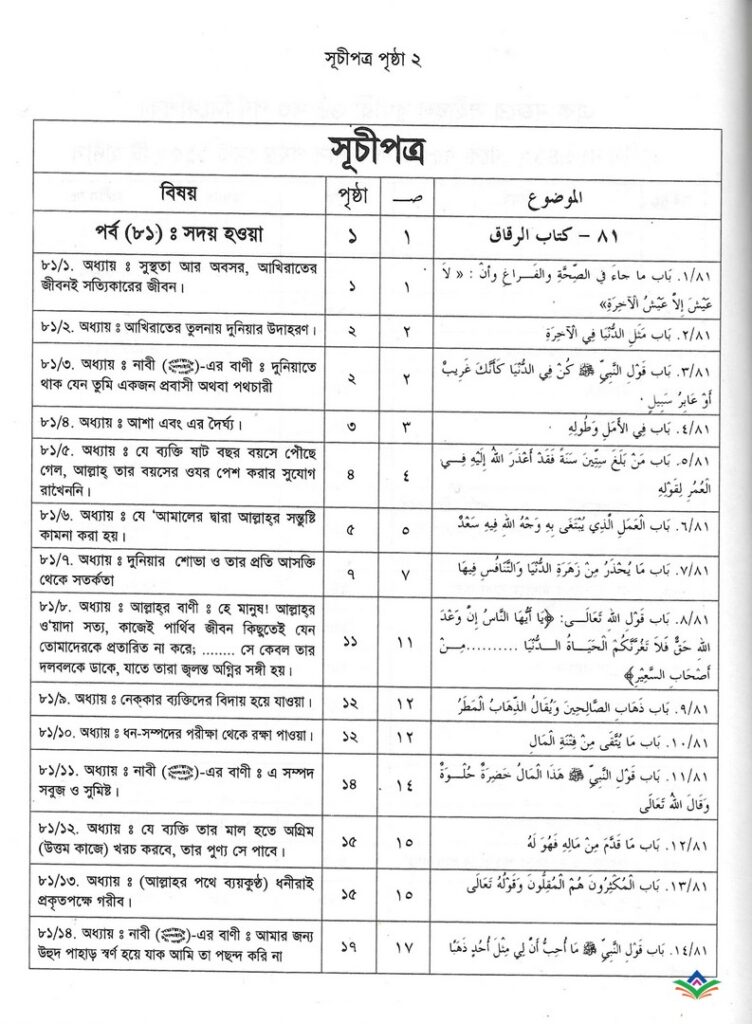 সূচীপত্র পৃষ্ঠা ২
সূচীপত্র
বিষয় পৃষ্ঠা صـــ الموضوع
পর্ব (৮১) ঃ সদয় হওয়া ১ ١ ٨١ – كتاب الرقاق
৮১/১. অধ্যায় ঃ সুস্থতা আর অবসর, আখিরাতের
জীবনই সত্যিকারের জীবন।
১ ١
١/٨١. بَاب مَا جَاءَ فِي الصِّحَّةِ وَالْفَرَاغِ وَأَنْ : « لَا
عَيْشَ إِلاَّ عَيْشُ الْآخِرَةِ»
৮১/২. অধ্যায় ঃ আখিরাতের তুলনায় দুনিয়ার উদাহরণ। ২ ٢ ٢/٨١. بَاب مَثَلِ الدُّنْيَا فِي الْآخِرَةِ
৮১/৩. অধ্যায় ঃ নাবী (ﷺ)-এর বাণী ঃ দুনিয়াতে
থাক যেন তুমি একজন প্রবাসী অথবা পথচারী
২ ٢
٣/٨١. بَاب قَوْلِ النَّبِيِّ ﷺ كُنْ فِي الدُّنْيَا كَأَنَّكَ غَرِيبٌ
أَوْ عَابِرُ سَبِيلٍ
৮১/৪. অধ্যায় ঃ আশা এবং এর দৈর্ঘ্য। ৩ ٣ ٤/٨١. بَاب فِي الأَمَلِ وَطُولِهِ
৮১/৫. অধ্যায় ঃ যে ব্যক্তি ষাট বছর বয়সে পৌছে
গেল, আল্লাহ্ তার বয়সের ওযর পেশ করার সুযোগ
রাখেননি।
৪ ٤
٥/٨١. بَاب مَنْ بَلَغَ سِتِّينَ سَنَةً فَقَدْ أَعْذَرَ اللهُ إِلَيْهِ فِــي
الْعُمُرِ لِقَوْلِهِ
৮১/৬. অধ্যায় ঃ যে ‘আমালের দ্বারা আল্লাহ্‌র সন্তুষ্টি
কামনা করা হয়।
৫ ٥
٦/٨١. بَاب الْعَمَلِ الَّذِي يُبْتَغَى بِهِ وَجْهُ اللهِ فِيهِ سَعْدٌ
৮১/৭. অধ্যায় ঃ দুনিয়ার শোভা ও তার প্রতি আসক্তি
থেকে সতর্কতা
৭ ٧
٧/٨١. بَاب مَا يُحْذَرُ مِنْ زَهَرَةِ الدُّنْيَا وَالتَّنَافُسِ فِيهَا
৮১/৮. অধ্যায় ঃ আল্লাহ্‌র বাণী ঃ হে মানুষ! আল্লাহর
ও‘য়াদা সত্য, কাজেই পার্থিব জীবন কিছুতেই যেন
তোমাদেরকে প্রতারিত না করে; ........ সে কেবল তার
দলবলকে ডাকে, যাতে তারা জ্বলন্ত অগ্নির সঙ্গী হয়।
১১ ١١
٨/٨١. بَاب قَوْلِ اللهِ تَعَالَــى: ﴿يَا أَيُّهَا النَّاسُ إِنَّ وَعْدَ
اللهِ حَقٌّ فَلَا تَغُرَّنَّكُمْ الْحَيَــاةُ الــدُّنْيَا ..........مِــنْ
أَصْحَابِ السَّعِيْرِ﴾
৮১/৯. অধ্যায় ঃ নেক্‌কার ব্যক্তিদের বিদায় হয়ে যাওয়া। ১২ ١٢ ٩/٨١. بَاب ذَهَابِ الصَّالِحِينَ وَيُقَالُ الذِّهَابُ الْمَطَرُ
৮১/১০. অধ্যায় ঃ ধন-সম্পদের পরীক্ষা থেকে রক্ষা পাওয়া। ১২ ١٢ ١٠/٨١. بَاب مَا يُتَّقَى مِنْ فِتْنَةِ الْمَالِ
৮১/১১. অধ্যায় ঃ নাবী (ﷺ)-এর বাণী ঃ এ সম্পদ
সবুজ ও সুমিষ্ট।
১৪ ١٤
١١/٨١. بَاب قَوْلِ النَّبِيِّ ﷺ هَذَا الْمَالُ خَضِرَةٌ حُلْــوَةٌ
وَقَالَ اللهُ تَعَالَى
৮১/১২. অধ্যায় ঃ যে ব্যক্তি তার মাল হতে অগ্রিম
(উত্তম কাজে) খরচ করবে, তার পুণ্য সে পাবে।
১৫ ١٥
١٢/٨١. بَاب مَا قَدَّمَ مِنْ مَالِهِ فَهُوَ لَهُ
৮১/১৩. অধ্যায় ঃ (আল্লাহর পথে ব্যয়কুণ্ঠ) ধনীরাই
প্রকৃতপক্ষে গরীব।
১৫ ١٥
١٣/٨١. بَاب الْمُكْثِرُونَ هُمْ الْمُقِلُّونَ وَقَوْلُهُ تَعَالَى
৮১/১৪. অধ্যায় ঃ নাবী (ﷺ)-এর বাণী ঃ আমার জন্য
উহুদ পাহাড় স্বর্ণ হয়ে যাক আমি তা পছন্দ করি না
১৭ ١٧
١٤/٨١. بَاب قَوْلِ النَّبِيِّ ﷺ مَا أُحِبُّ أَنَّ لِي مِثْلَ أُحُدٍ ذَهَبًا